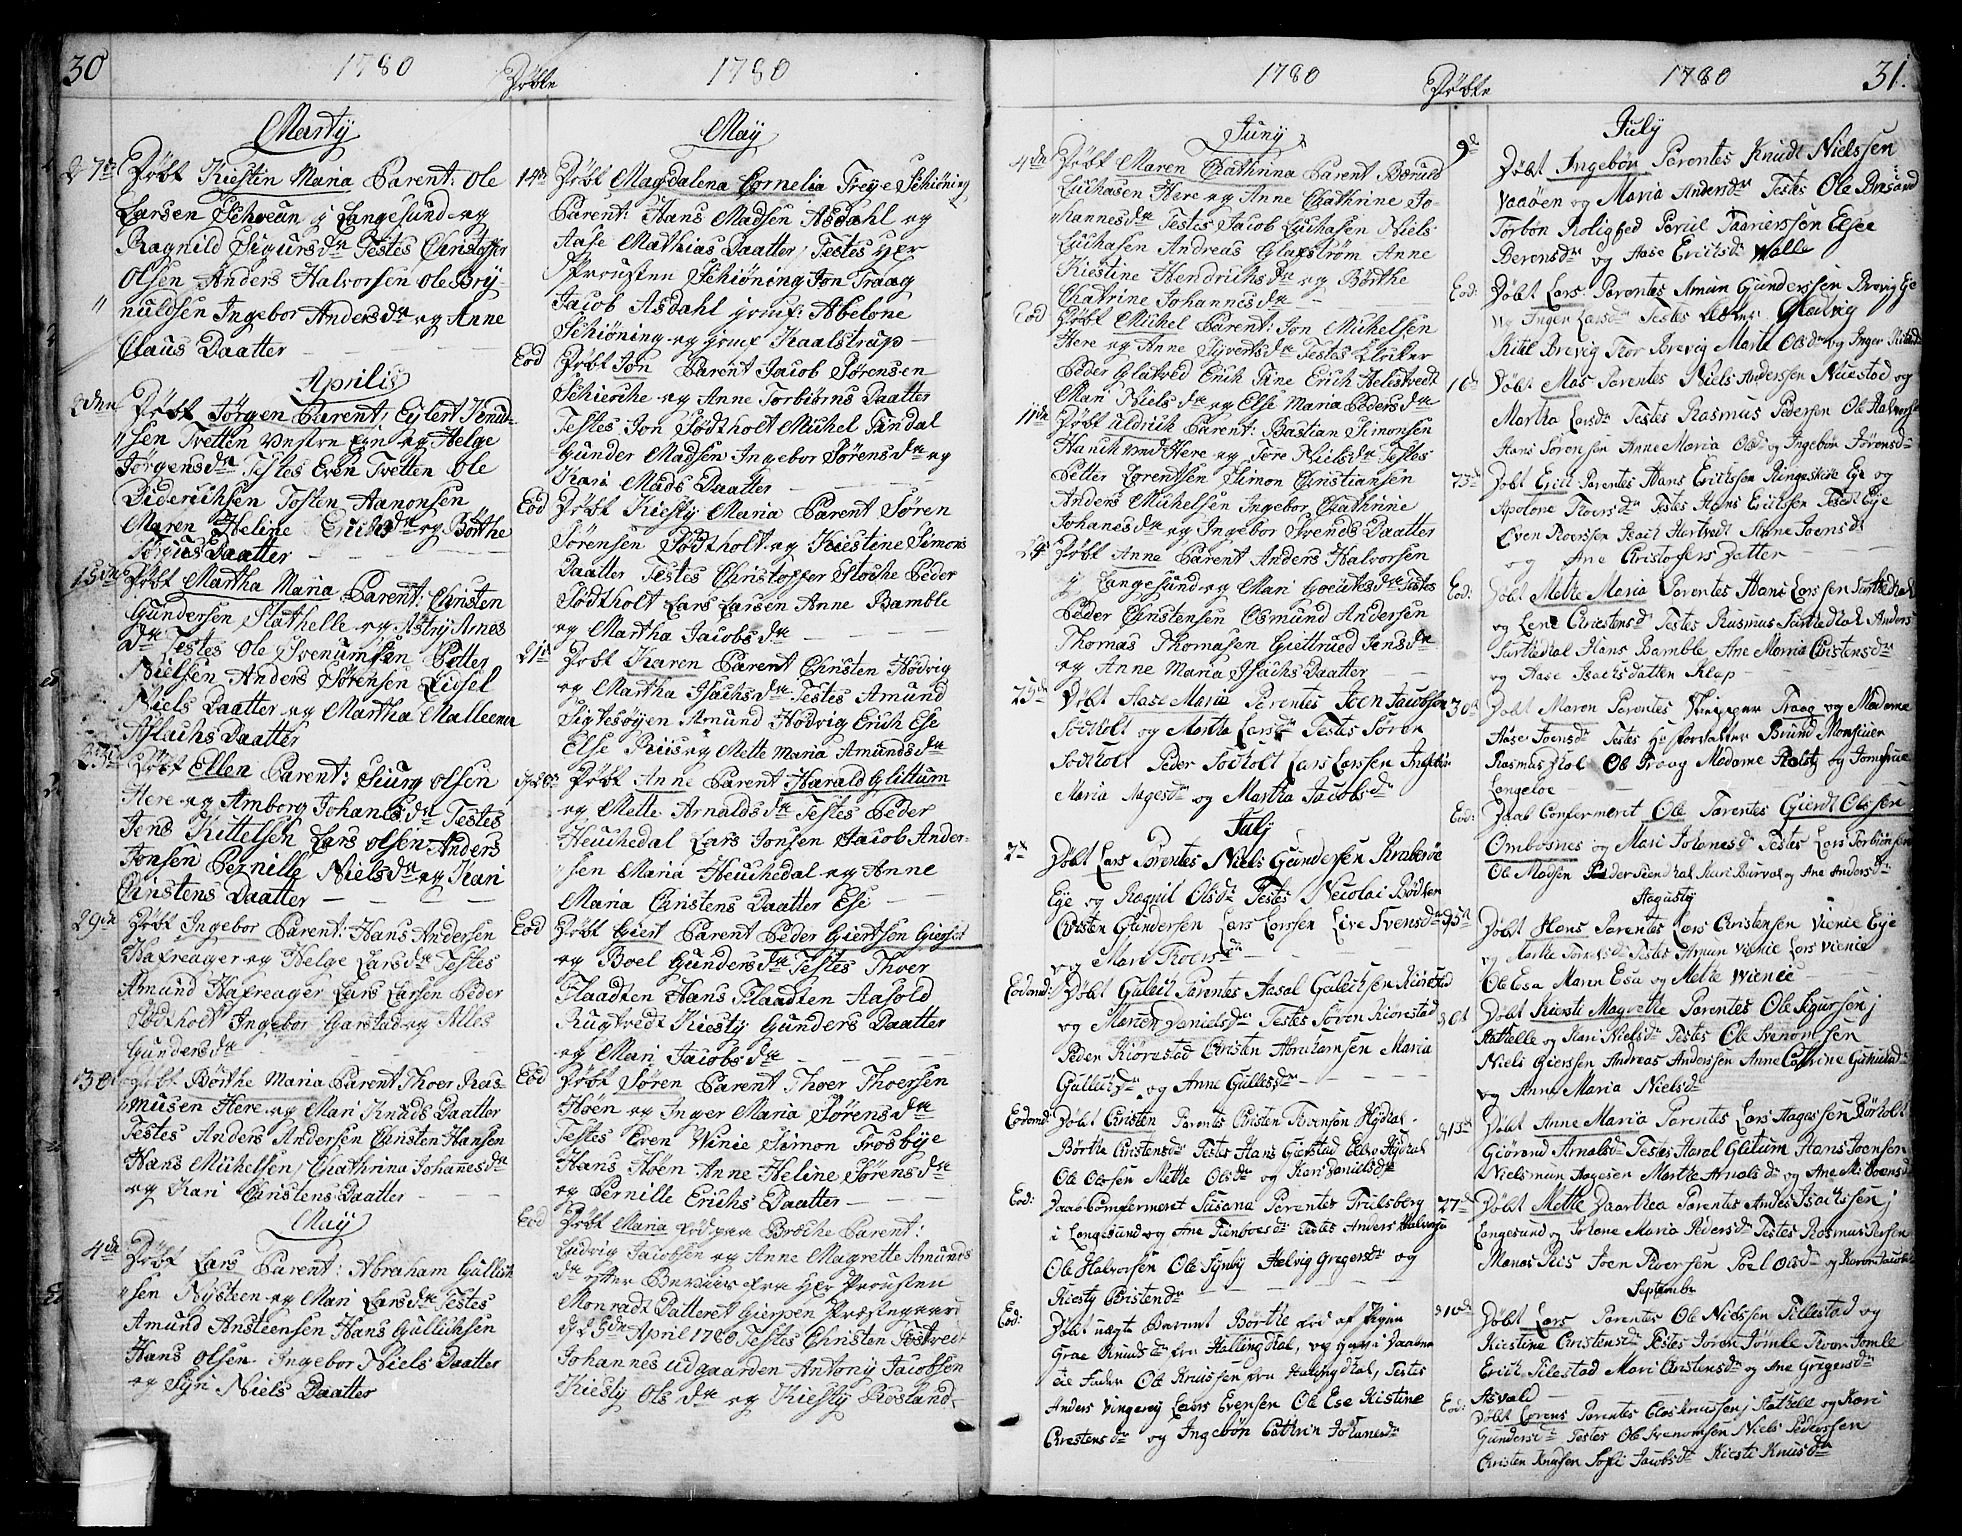 30
1780
Døbte
1780
Marty
27de Døbt Kiestin Maria Parent: Ole
Larsen Schveun i Langesund og
Ragnild Sigursdtr Testes Christoffer
Olsen Anders Halvorsen Ole Bry-
nuldsen Ingebor Andersdtr og Anne
Claus Daatter
Aprilis
2den Døbt Jørgen Parent: Eylert Knud-
sen Tvetten og Helge
Jørgensdtr Testes Even Tvetten Ole
Diderichsen Tosten Aanonsen
Maren Heline Erichsdtr og Børthe
Torgus Daatter
15de Døbt Martha Maria Parent: Christen
Gundersen Stathelle og Astry Arnes
dtr Testes Ole Svenumsen Petter
Nielsen Anders Sørensen Lidsel
Niels Daatter og Martha Malleena
Aslachs Daatter
23de Døbt Ellen Parent: Siurg Olsen
Here og Amborg Johanesdtr Testes
Jens Kittelsen Lars Olsen Anders
Jonsen Pernille Nielsdtr og Kari
Christens Daatter
29de Døbt Ingebor Parent: Hans Andersen
Hafreager og Helge Larsdtr Testes
Amund Hafreager Lars Larsen Peder
Sødtholt Ingebor Garstad og Alles
Gundersdtr
30 Døbt Børthe Maria Parent Thoer Ras-
musen Here og Mari Knuds Daatter
Testes Anders Andersen Christen Hansen
Hans Michelsen Chathrina Johanesdtr
og Kari Christens Daatter
May
4de Døbt Lars Parent: Abraham Gullich
sen Nysteen og Mari Larsdtr Testes
Amund Ansteensen Hans Gullichsen
Hans Olsen Ingebor Niels Daatter
og Syri Niels Daatter
May
14de Døbt Magdalena Cornelia Freye Schiøning
Parent: Hans Madsen Asdahl og
Aase Mathias Daatter, Testes Hr
Prousten Schiøning Jon Fraag
Jacob Asdahl jomf: Abelone
Schiøning og jomf Kaalstrup
Eod Døbt Jon Parent Jacob Sørensen
Schierche og Anne Torbiørns Daatter
Testes Jon Sødtholt Michel Findal
Gunder Madsen Ingebor Sørensdtr og
Kari Mads Daatter
Eod Døbt Kiesty Maria Parent Søren
Sørensen Sødtholt og Kiestine Simons
Daatter Testes Christopher Stoche Peder
Sødtholt Lars Larsen Anne Bamble
og Martha Jacobsdtr
21de Døbt Karen Parent Christen Hødvig
og Martha Isachsdtr Testes Amund
Sigtesøyen Amund Hødvig Erich Ese
Else Riis og Mette Maria Amundsdtr
Døbt Anne Parent Harald Glittum
og Mette Arnaldsdtr Testes Peder
Heuchedal Lars Jonsen Jacob Ander-
sen Maria Heuchedal og Anne
Maria Christens Daatter Ese
Eod Døbt Giert Parent Peder Giertsen
og Boel Gundersdtr Testes Thoer
Flaadten Hans Flaadten Aasold
Rugtvedt Kiesty Gunders Daatter
og Mari Jacobsdtr
Eod Døbt Søren Parent Thoer Thoersen
Høen og Inger Maria Sørensdtr
Testes Even Vinie Simon Trosbye
Hans Høen Anne Heline Sørensdtr
og Pernille Erichs Daatter
Eod Døbt Maria Parent:
Ludvig Jacobsen og Anne Magrette Amunds
dtr efter Beviis fra Hr Prousten
Monradt Datteret Gierpen Præstegaard
d 25de April 1780 Testes Christen Tostvedt
Johannes udgaarden Anthony Jacobsen
Kiesty Olsdtr og Kiesty Rosland
1780
Døbte
1780
31.
Juny
4den Døbt Maren Chathrina Parent Børund
Luchasen Here og Anne Chathrine Jo-
hannesdtr Testes Jacob Luchasen Niels
Luchasen Andreas Glafstrøm Anne
Kiestine Hendrichsdtr og Børthe
Chatrine Johannesdtr
Eod Døbt Michel Parent: Jon Michelsen
Here og Anne Syvertsdtr Testes Klocker
Peder Glatved Erich Fine Erich Helletvedt
Mari Nielsdtr og Else Maria Pedersdtr
11de Døbt Uldrich Parent: Bastian Simonsen
Here og Tore Nielsdtr Testes
Petter Lorentsen Simon Christiansen
Anders Michelsen Ingebor Chathrine
Johanesdtr og Ingebor Svends Daatter
Døbt Anne Parent Anders Halvorsen
i Langesund og Mari Testes
Peder Christensen Osmund Andersen
Thomas Thomasen Giertrued Jensdtr
og Anne Maria Isachs Daatter
25de Døbt Aase Maria Parentes Joen Jacobsen
Sødtholt og Martha Larsdtr Testes Søren
Sødtholt Peder Sødtholt Lars Larsen Ingebør
Maria Aagesdtr og Martha Jacobsdtr
July
2de Døbt Lars Parentes Niels Gundersen Kraberøe
Ege og Ragnil Olsdtr Testes Nicolai Bødker
Cristen Gundersen Lars Larsen Live Svensdtr
og Mari Thoersdtr
Eodmd: Døbt Gulich Parentes Aasal Gulichsen Kiørestad
og Maren Danielsdtr Testes Søren Kiørestad
Peder Kiørestad Christen Abrahamsen Maria
Gullichsdtr og Anne Gullesdtr
Eodmd: Døbt Christen Parentes Cristen Sørensen Hysdal
Børthe Christensdtr Testes Hans Gierstad Peder Hysdal
Ole Olssen Mette Olsdtr og Kari Danielsdtr
Eod: Daab Comfermeret Susana Parentes Trulsberg
i Langesund og Ane Tienboesdtr Testes Anders Halvorsen
Ole Halvorsen Ole Synby Helvig Gregersdtr og
Kiesty Cristensdtr
Eod: Døbt uægte Barnet Børthe avl af Pigen
Grae Knudsdtr fra Hallingdal, og
Fader Ole Knussen fra Halingdal, Testes
Anders Vingerey Lars Evensen Ole Ese Kistine
Crestensdtr og Ingebøn Cathrin Johansdtr
July
9de Døbt Ingebør Parentes Knudt Nielssen
Vaaøen og Maria Andersdtr Testes Ole Brisand
Torbøn Rolighed Poul Taarierssen Elsee
Berensdtr og Aase Erichsdtr Valle
Eod: Døbt Lars Parentes Amun Gunderssen Brevig Eje
og Inger Larsdtr Testes Gladvig
Kitil Brevig Tor Brevig Marte Olsdtr og Inger
16de Døbt Mas Parentes Niels Anderssen Nuestad og
Martha Larsdtr Testes Rasmus Pedersen Ole Halvorsen
Hans Sørensen Anne Maria Olsdtr og Ingebør Jørensdtr
Døbt Erich Parentes Hans Erichssen Ringeskide Eje og
Apolone Thoersdtr Testes Hans Erichsen Tvedt Eje
Even Thoerssen Isach Hartvedt Anne Joensdtr
og Ane Christofers Datter
Eod: Døbt Mette Maria Parentes Hans Larssen
og Lene Christensdtr Testes Rasmus Surthedal Anders
Surthedal Hans Bamble Ane Maria Christensdtr
og Aase Isachsdatter Klep
30de Døbt Maren Parentes Skipper Fraag og Madame
Aase Joensdtr Testes Hr Forvalter Brund Monsiuer
Rasmus Ole Fraag Madame Holst og Jomfrue
Langeloe
Eod: Daab Confermeret Ole Parentes Giordt Olssen
Ombosnes og Mari Johanesdtr Testes Lars Torbiønsen
Ole Madsen Peder Steendal Kari Burval og Ane Andersdtr
Augusty
Døbt Hans Parentes Lars Christensen Vienie Eje
og Marthe Testes Amun Vienie Lars Vienie
Ole Esa Maren Esa og Mette Vienie
Døbt Kiersti Magrethe Parentes Ole Sigurssen i
Stathelle og Kari Nielsdtr Testes Ole Svenomsen
Niels Gierssen Andreas Anderssen Anne Cathrine
og Anne Maria Nielsdtr
d13de Døbt Anne Maria Parentes Lars Aagessen Børholt
Giørand Arnalsdtr Testes Haral Glitum Hans Joensen
Nielsmun Aagesen Marthe Arnalsdtr og Ane M: Boensdtr
27de Døbt Mette Daarthea Parentes Anders Isachssen i
Langesund og Johane Maria Pedersdtr Testes Rasmus Rossen
Manas Riis Joen Iversen Poel Olsdtr og Karen Jacobsdtr
September
d10de Døbt Lars Parentes Ole Nielssen Tillestad og
Kiestine Cristensdtr Testes Søren Tømle Thor Tømle
Erich Tilestad Mari Christensdtr og Ane Gregersdtr
Asvald
Eod: Døbt Lorens Parentes Claes Knussen i Stathelle og Kari
Gundersdtr Testes Ole Svenomsen Niels Pederssen
Christen Knudsen Sofi Jacobsdtr Kiesti Knusdtr